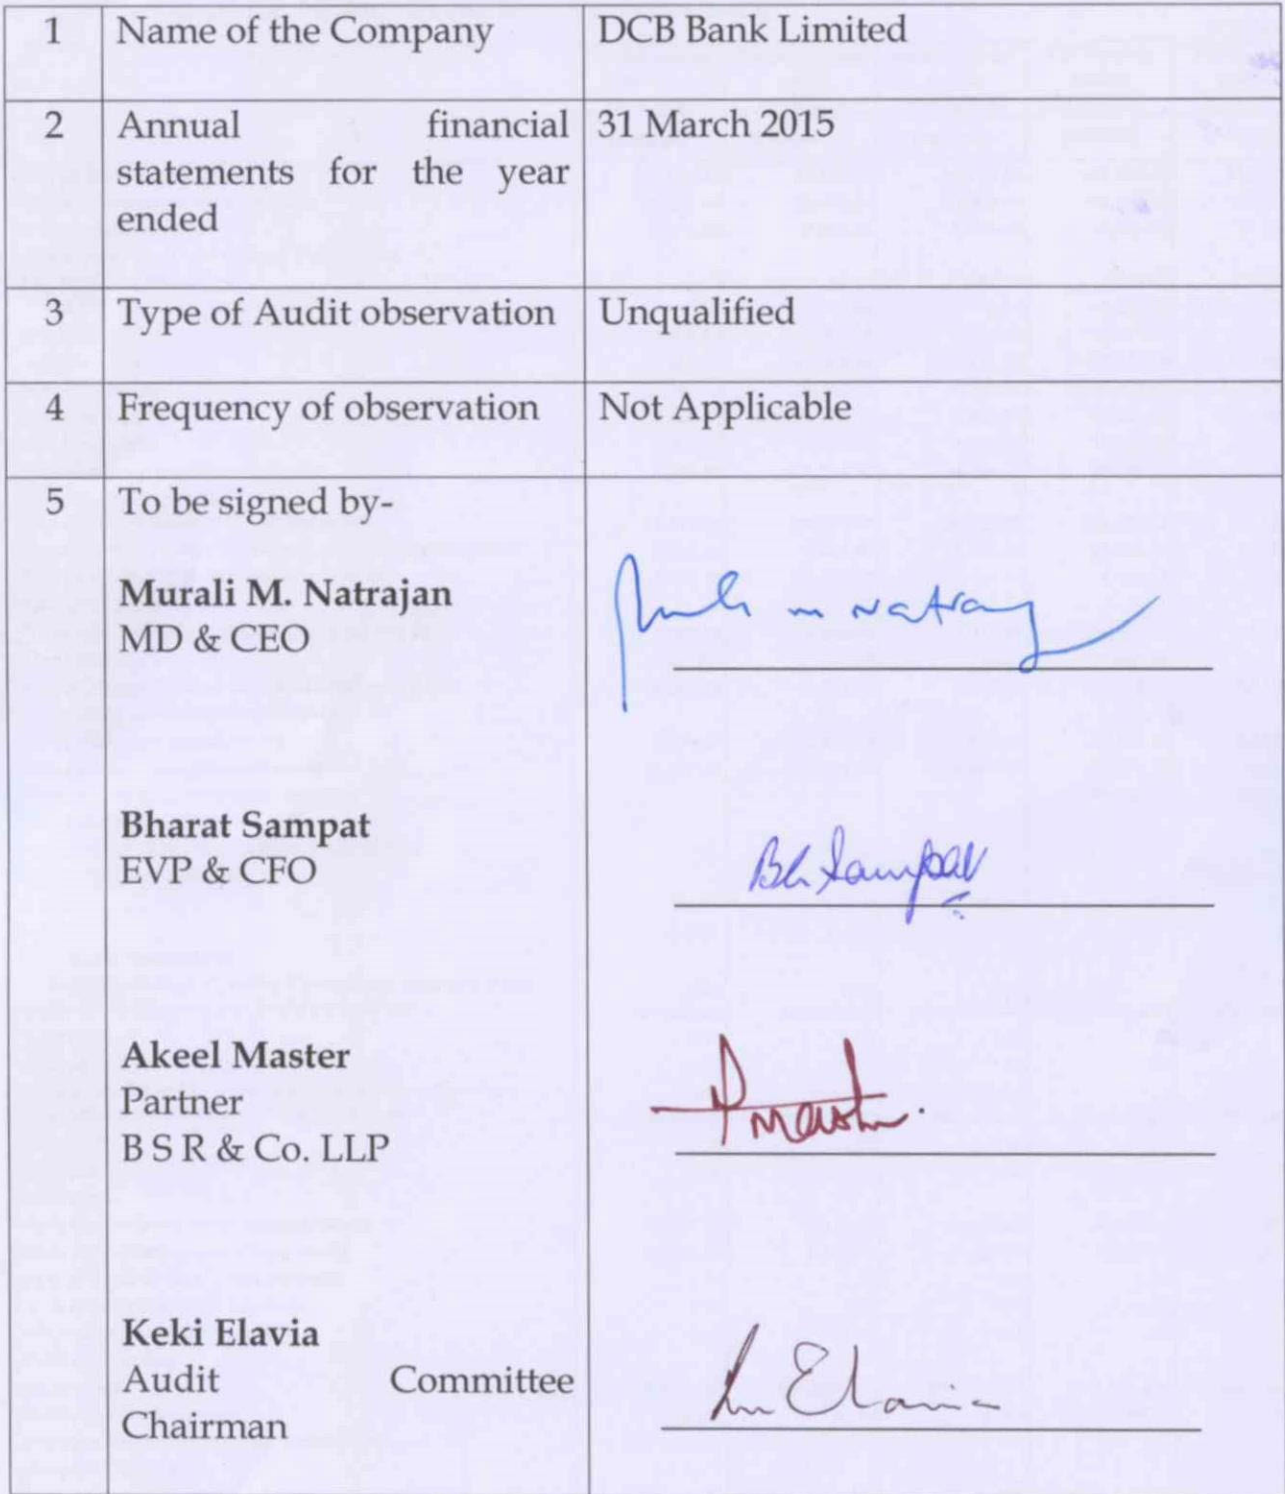 1 Name of the Company DCB Bank Limited
2 Annual financial 31 March 2015
statements for the year
ended
3 Type of Audit observation Unqualified
4 Frequency of observation Not Applicable
5 To be signed by-
Murali M. Natrajan
MD & CEO
Bharat Sampat
EVP & CFO
Akeel Master
Partner
B S R & Co. LLP
Keki Elavia
Audit Committee
Chairman